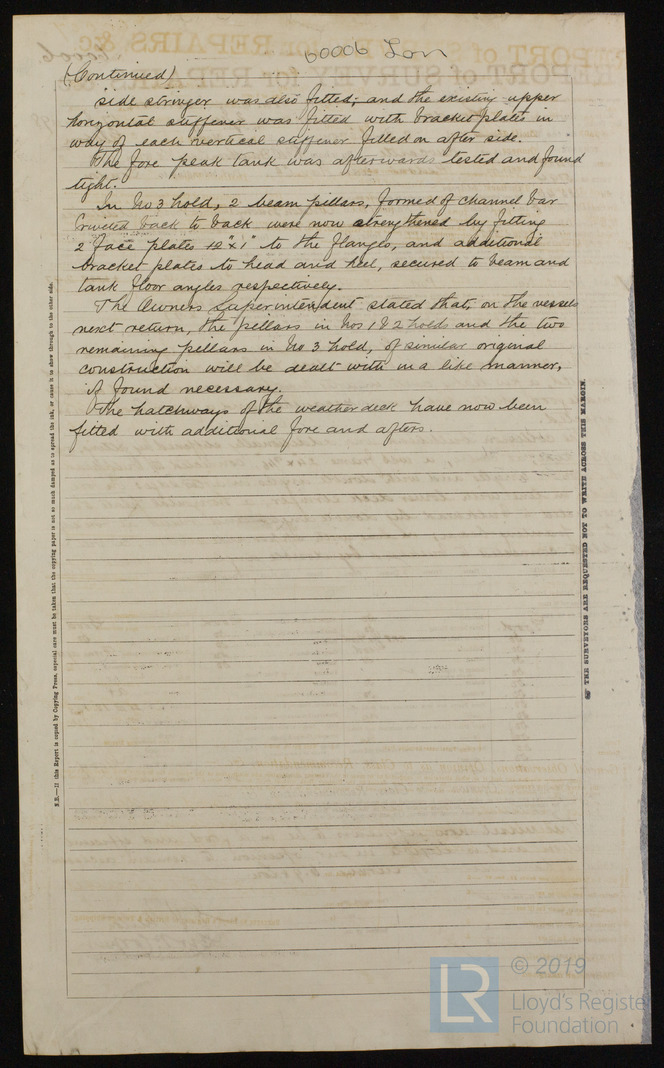 60006 Lon
(Continued)
side stringer was also fitted; and the existing upper
horizontal stiffener was fitted with bracket plates in
way of each vertical stiffener fitted on after side.
The fore peak tank was afterwards tested and found
tight.
In No 3 hold, 2 beam pillars, formed of channel bar
riveted back to back were now strengthened by fitting
2 face plates 12" x 1" to the flanges, and additional
bracket plates to head and heel, secured to beam and
tank floor angles respectively.
The Owners Superintendent stated that, on the vessels
next return, the pillars in Nos 1 & 2 holds and the two
remaining pillars in No 3 hold, of similar original
construction will be dealt with in a like manner,
if found necessary.
The hatchways of the weather deck have now been
fitted with additional fore and afters.
N.B.—If this Report is copied by Copying Press, especial care must be taken that the copying paper is not so much damped as to spread the ink, or cause it to show through to the other side.
THE SURVEYORS ARE REQUESTED NOT TO WRITE ACROSS THIS MARGIN.
LR
© 2019
Lloyd's Register
Foundation